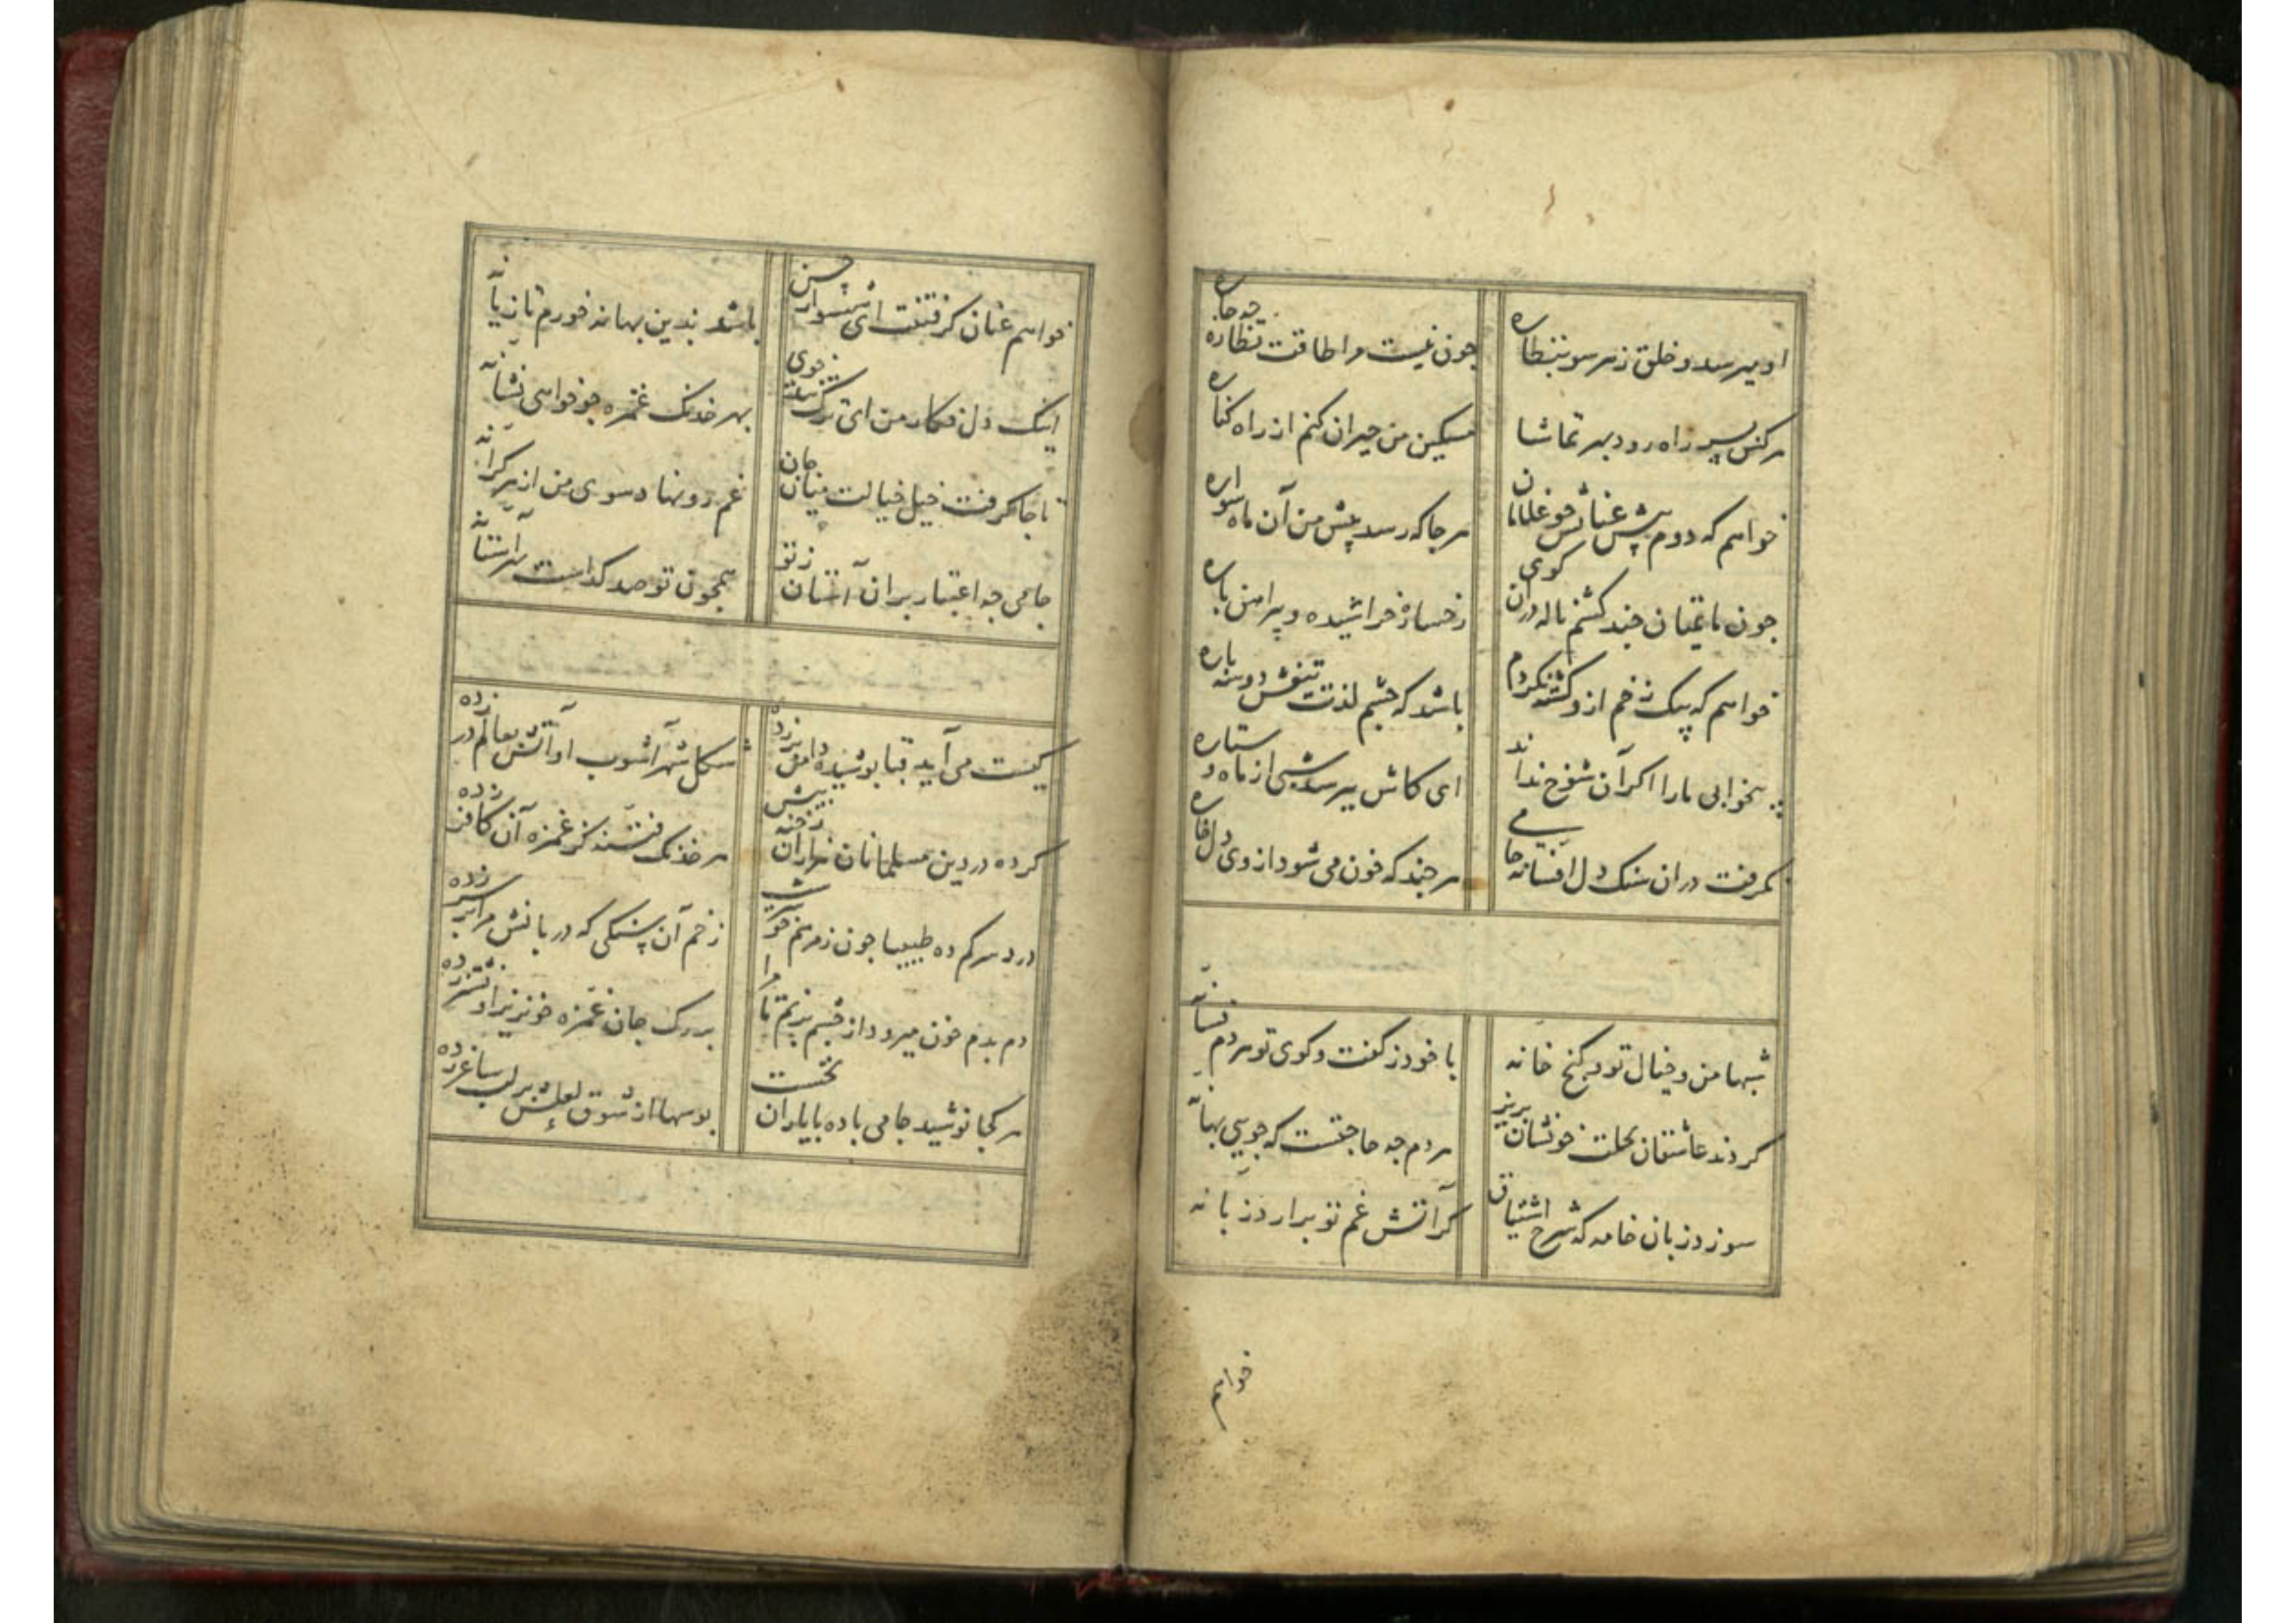 او میرسد و خلق ز هر سو بنظاره جون نیست مرا طاقت نظاره چه جاره
هر کس بسر راه رود بهر تماشا مسکین من حیران کنم از راه کناره
خواهم که دوم پیش عنانش جو غلامان هر جا که رسد پیش من آن ماه سواره
جون ماتمیان جند کشم ناله دران کوی رخساره خراشیده و پیراهن پاره
خواهم که بیک زخم ازو کشته نکردم باشد که جشم لذت تیغش دو سه باره
بیخوابی ما را اکر آن شوخ نداند ای کاش بپرسد شبی از ماه و ستاره
نکرفت در ان سنک دل افسانه جامی هر جند که خون می شود از وی دل خاره
شبها من و خیال تو و کنج خانه با خود ز کفت و کوی تو هر دم فسانه
کردند عاشقان بحلت خونشان بریز هر دم جه حاجتست که جویی بهانه
سوزد زبان خامه که شرح اشتیاق کر آتش غم تو برارد زبانه
خواهم
خواهم عنان کرفتنت ای شهسوار حسن باشد بدین بهانه خورم تازیانه
اینک دل فکار من ای ترک تندخوی بهر خدنک غمزه جو خواهی نشانه
تا جا کرفت خیل خیالت میان جان غم رو نهاد سوی من از هر کرانه
جامی جه اعتبار بران آستان ز تو همجون تو صد کداست بهر آستانه
کیست می آید قبا پوشیده دامن بر زده شکل شهرآشوب او آتش بعالم در زده
کرده در دین مسلمانان هزاران رخنه بیش هر خدنک فتنه کز غمزه آن کافر زده
درد سر کم ده طبیبا جون ز مرهم خوشترست زخم آن سنکی که دربانش مرا بر سر زده
دم بدم خون میرود از جشم پر نم تا مرا بر رک جان غمزه خونریز او نشتر زده
هر کجا نوشید جامی باده با یاران نخست بوسها از شوق لعلش بر لب ساغر زده